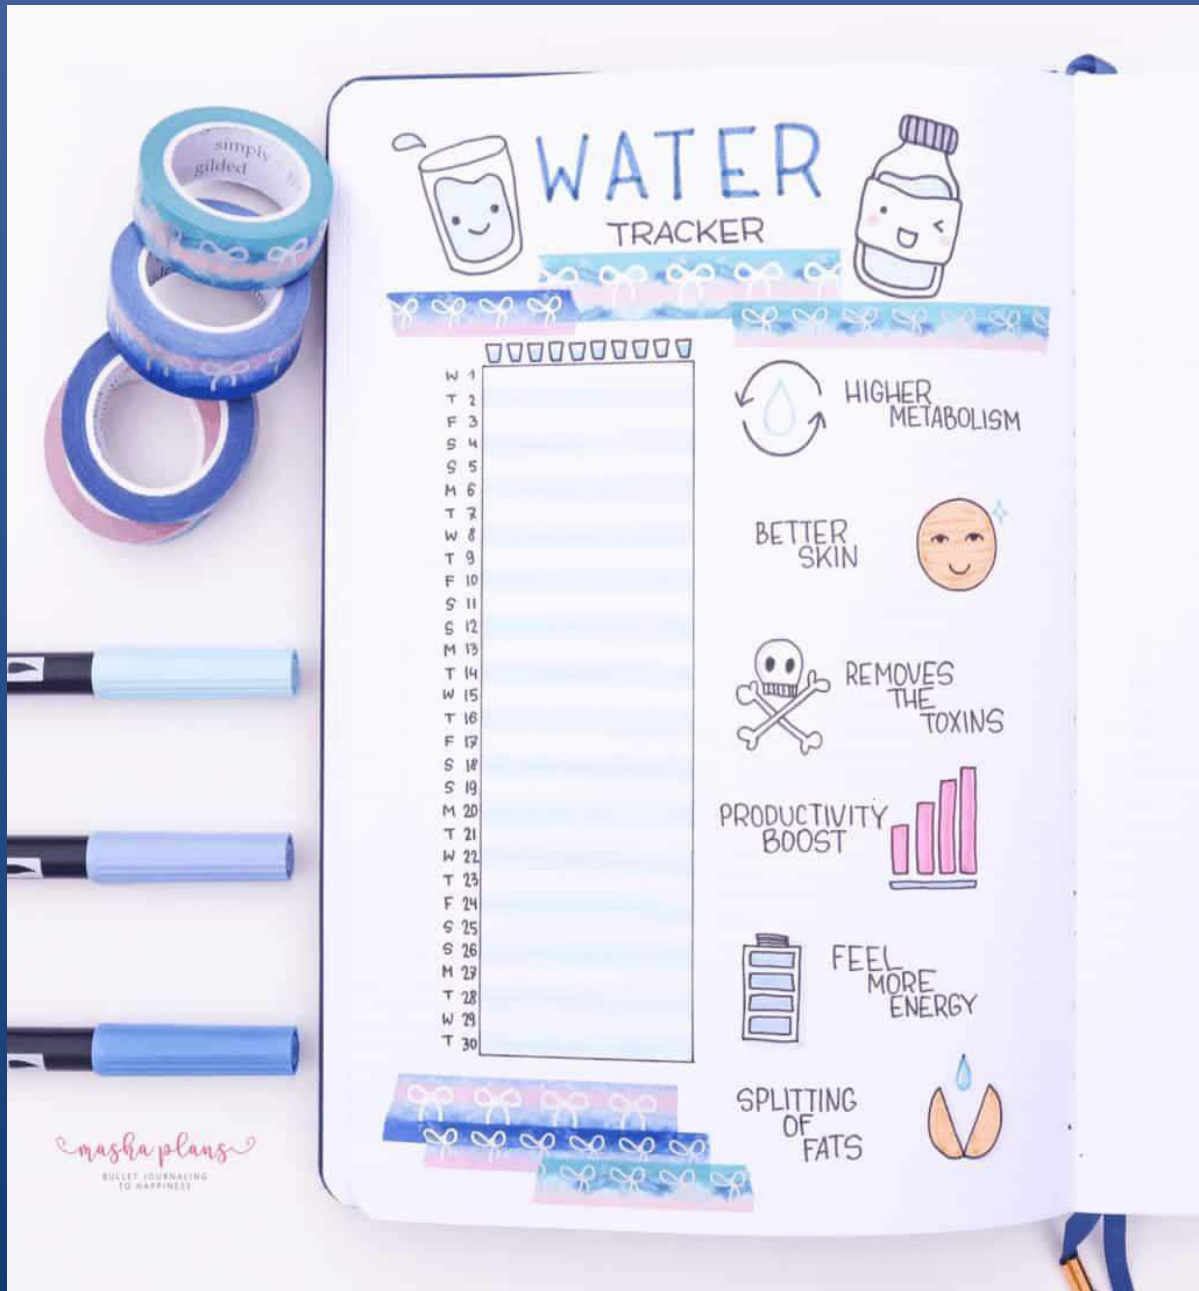 simply
gilded
WATER
TRACKER
W 1
T 2
F 3
S 4
S 5
M 6
T 7
W 8
T 9
F 10
S 11
S 12
M 13
T 14
W 15
T 16
F 17
S 18
S 19
M 20
T 21
W 22
T 23
F 24
S 25
S 26
M 27
T 28
W 29
T 30
HIGHER
METABOLISM
BETTER
SKIN
REMOVES
THE
TOXINS
PRODUCTIVITY
BOOST
FEEL
MORE
ENERGY
SPLITTING
OF
FATS
masha plans
BULLET JOURNALING
TO HAPPINESS